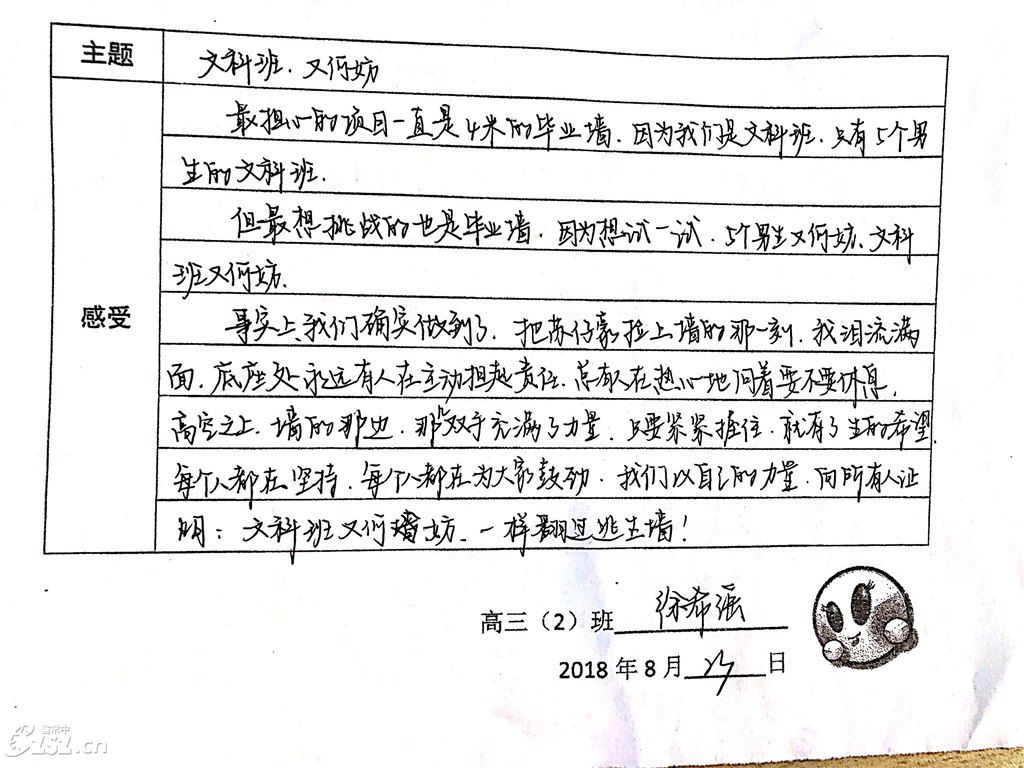 主题
文科班.又何妨
最担心的项目一直是4米的毕业墙.因为我们是文科班.只有5个男
生的文科班.
但最想挑战的也是毕业墙.因为想试一试.5个男生又何妨、文科
班又何妨.
感受
事实上、我们确实做到了.把苏仔豪拉上墙的那一刻.我泪流满
面.底座处永远有人在主动担起责任.总有人在热心地问着要不要休息.
高空之上.墙的那边.那双手充满了力量.只要紧紧握住.就有了生的希望.
每个人都在坚持.每个人都在为大家鼓劲.我们以自己的力量.向所有人证
明:文科班又何妨.一样翻过逃生墙!
高三(2)班 徐希
2018年8月 日